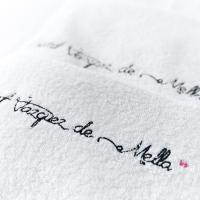 Vazquez de Mella
Vazquez de Mella